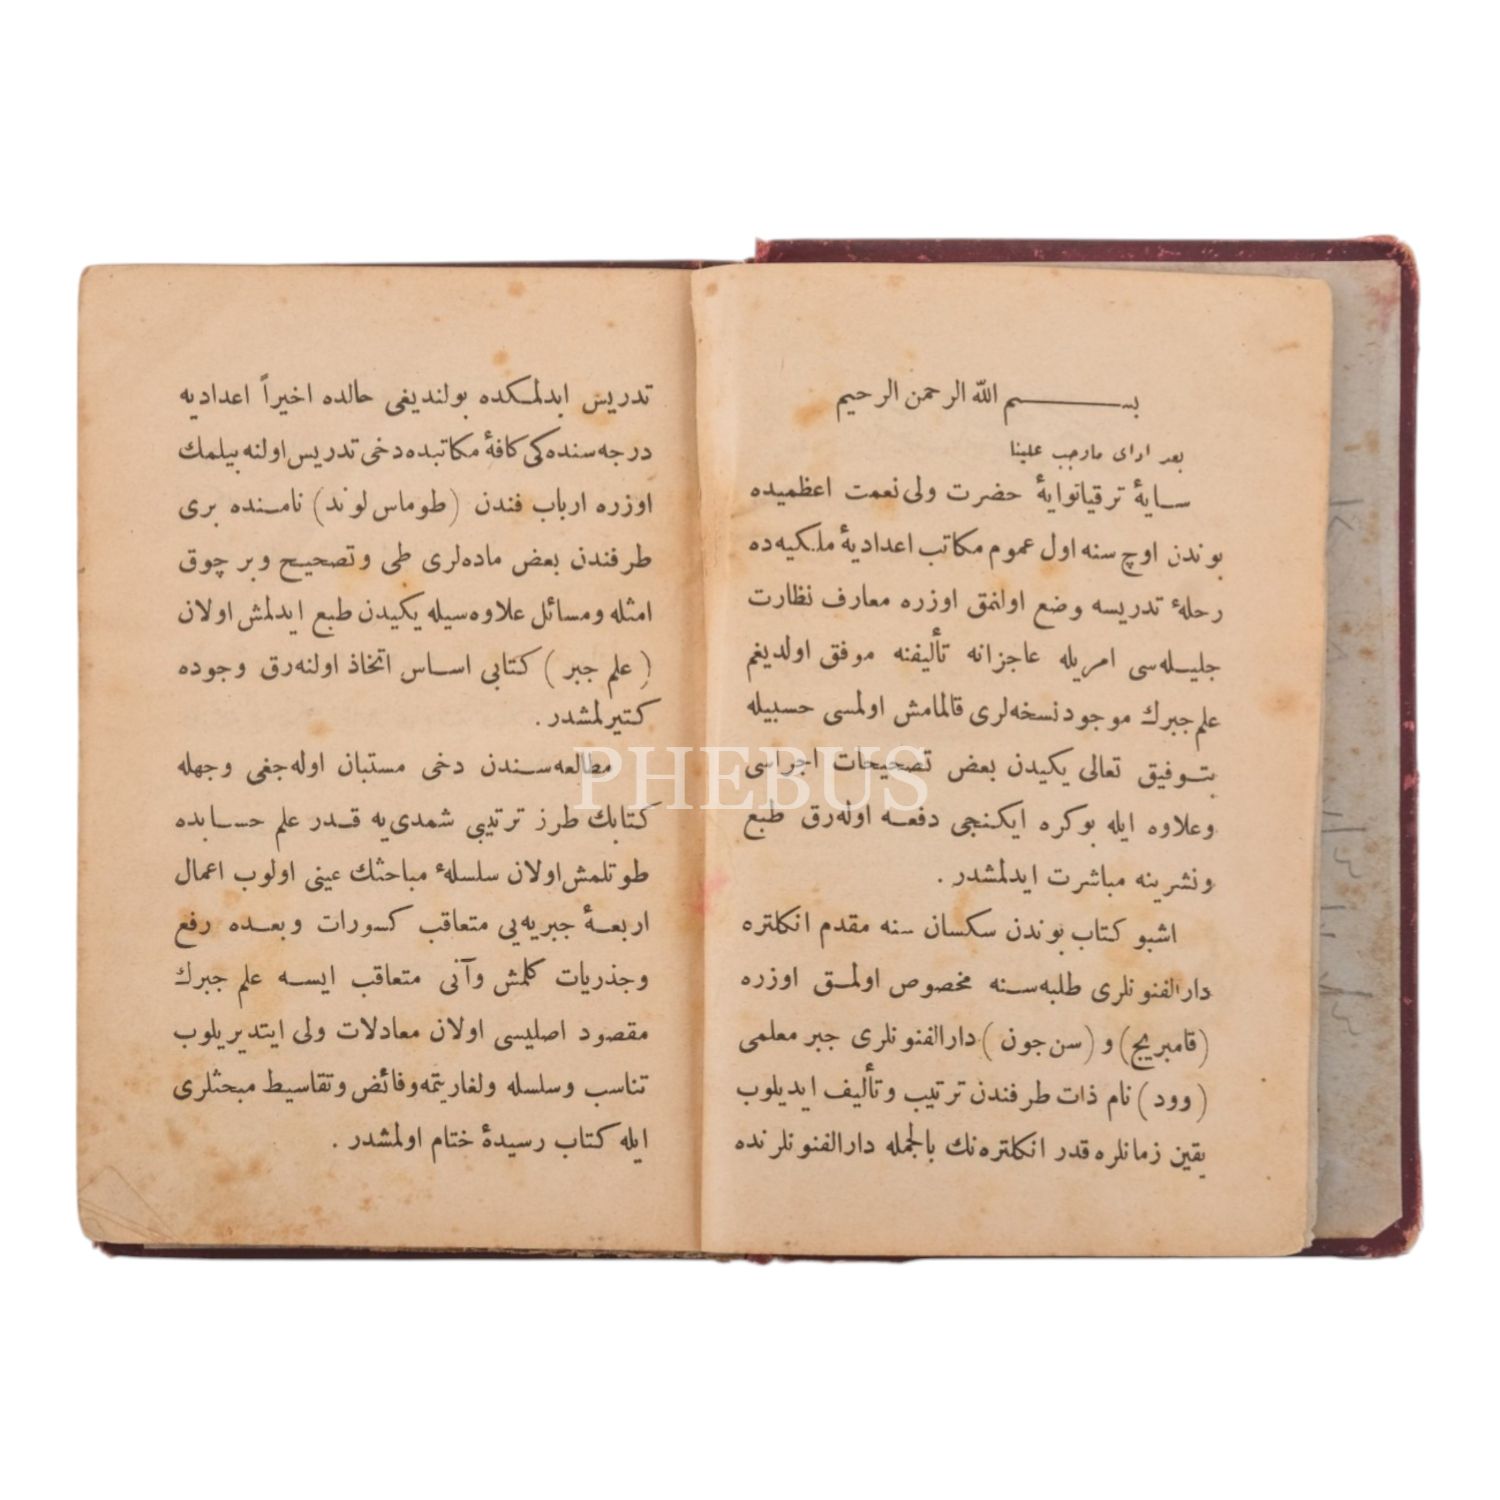 بسم الله الرحمن الرحيم
بعد ادای ماوجب علینا
سایهٔ ترقیاتوایهٔ حضرت ولی نعمت اعظمیده
بوندن اوچ سنه اول عموم مکاتب اعدادیهٔ ملکیه‌ده
رحلهٔ تدریسه وضع اولنمق اوزره معارف نظارت
جلیله‌سی امریله عاجزانه تألیفنه موفق اولدیغم
علم جبرك موجود نسخه‌لری قالمامش اولمسی حسبیله
بتوفیق تعالی یکیدن بعض تصحیحات اجراسی
وعلاوه ایله بوکره ایکنجی دفعه اوله‌رق طبع
ونشرینه مباشرت ایدلمشدر .
اشبو کتاب بوندن سکسان سنه مقدم انکلتره
دارالفنونلری طلبه‌سنه مخصوص اولمق اوزره
(قامبریج) و (سن جون) دارالفنونلری جبر معلمی
(وود) نام ذات طرفندن ترتیب و تألیف ایدیلوب
یقین زمانلره قدر انکلتره‌نك بالجمله دارالفنونلرنده
تدریس ایدلمکده بولندیغی حالده اخیراً اعدادیه
درجه‌سنده‌کی کافهٔ مکاتبده دخی تدریس اولنه بیلمك
اوزره ارباب فندن (طوماس لوند) نامنده بری
طرفندن بعض ماده‌لری طی وتصحیح وبر چوق
امثله ومسائل علاوه‌سیله یکیدن طبع ایدلمش اولان
(علم جبر) کتابی اساس اتخاذ اولنه‌رق وجوده
کتیرلمشدر .
مطالعه‌سندن دخی مستبان اوله‌جغی وجهله
کتابك طرز ترتیبی شمدی‌یه قدر علم حسابده
طوتلمش اولان سلسلهٔ مباحثك عینی اولوب اعمال
اربعهٔ جبریه‌یی متعاقب کسورات وبعده رفع
وجذریات کلمش وآنی متعاقب ایسه علم جبرك
مقصود اصلیسی اولان معادلات ولی ایتدیریلوب
تناسب وسلسله ولغاریتمه وفائض وتقاسیط مبحثلری
ایله کتاب رسیدهٔ ختام اولمشدر .
PHEBUS